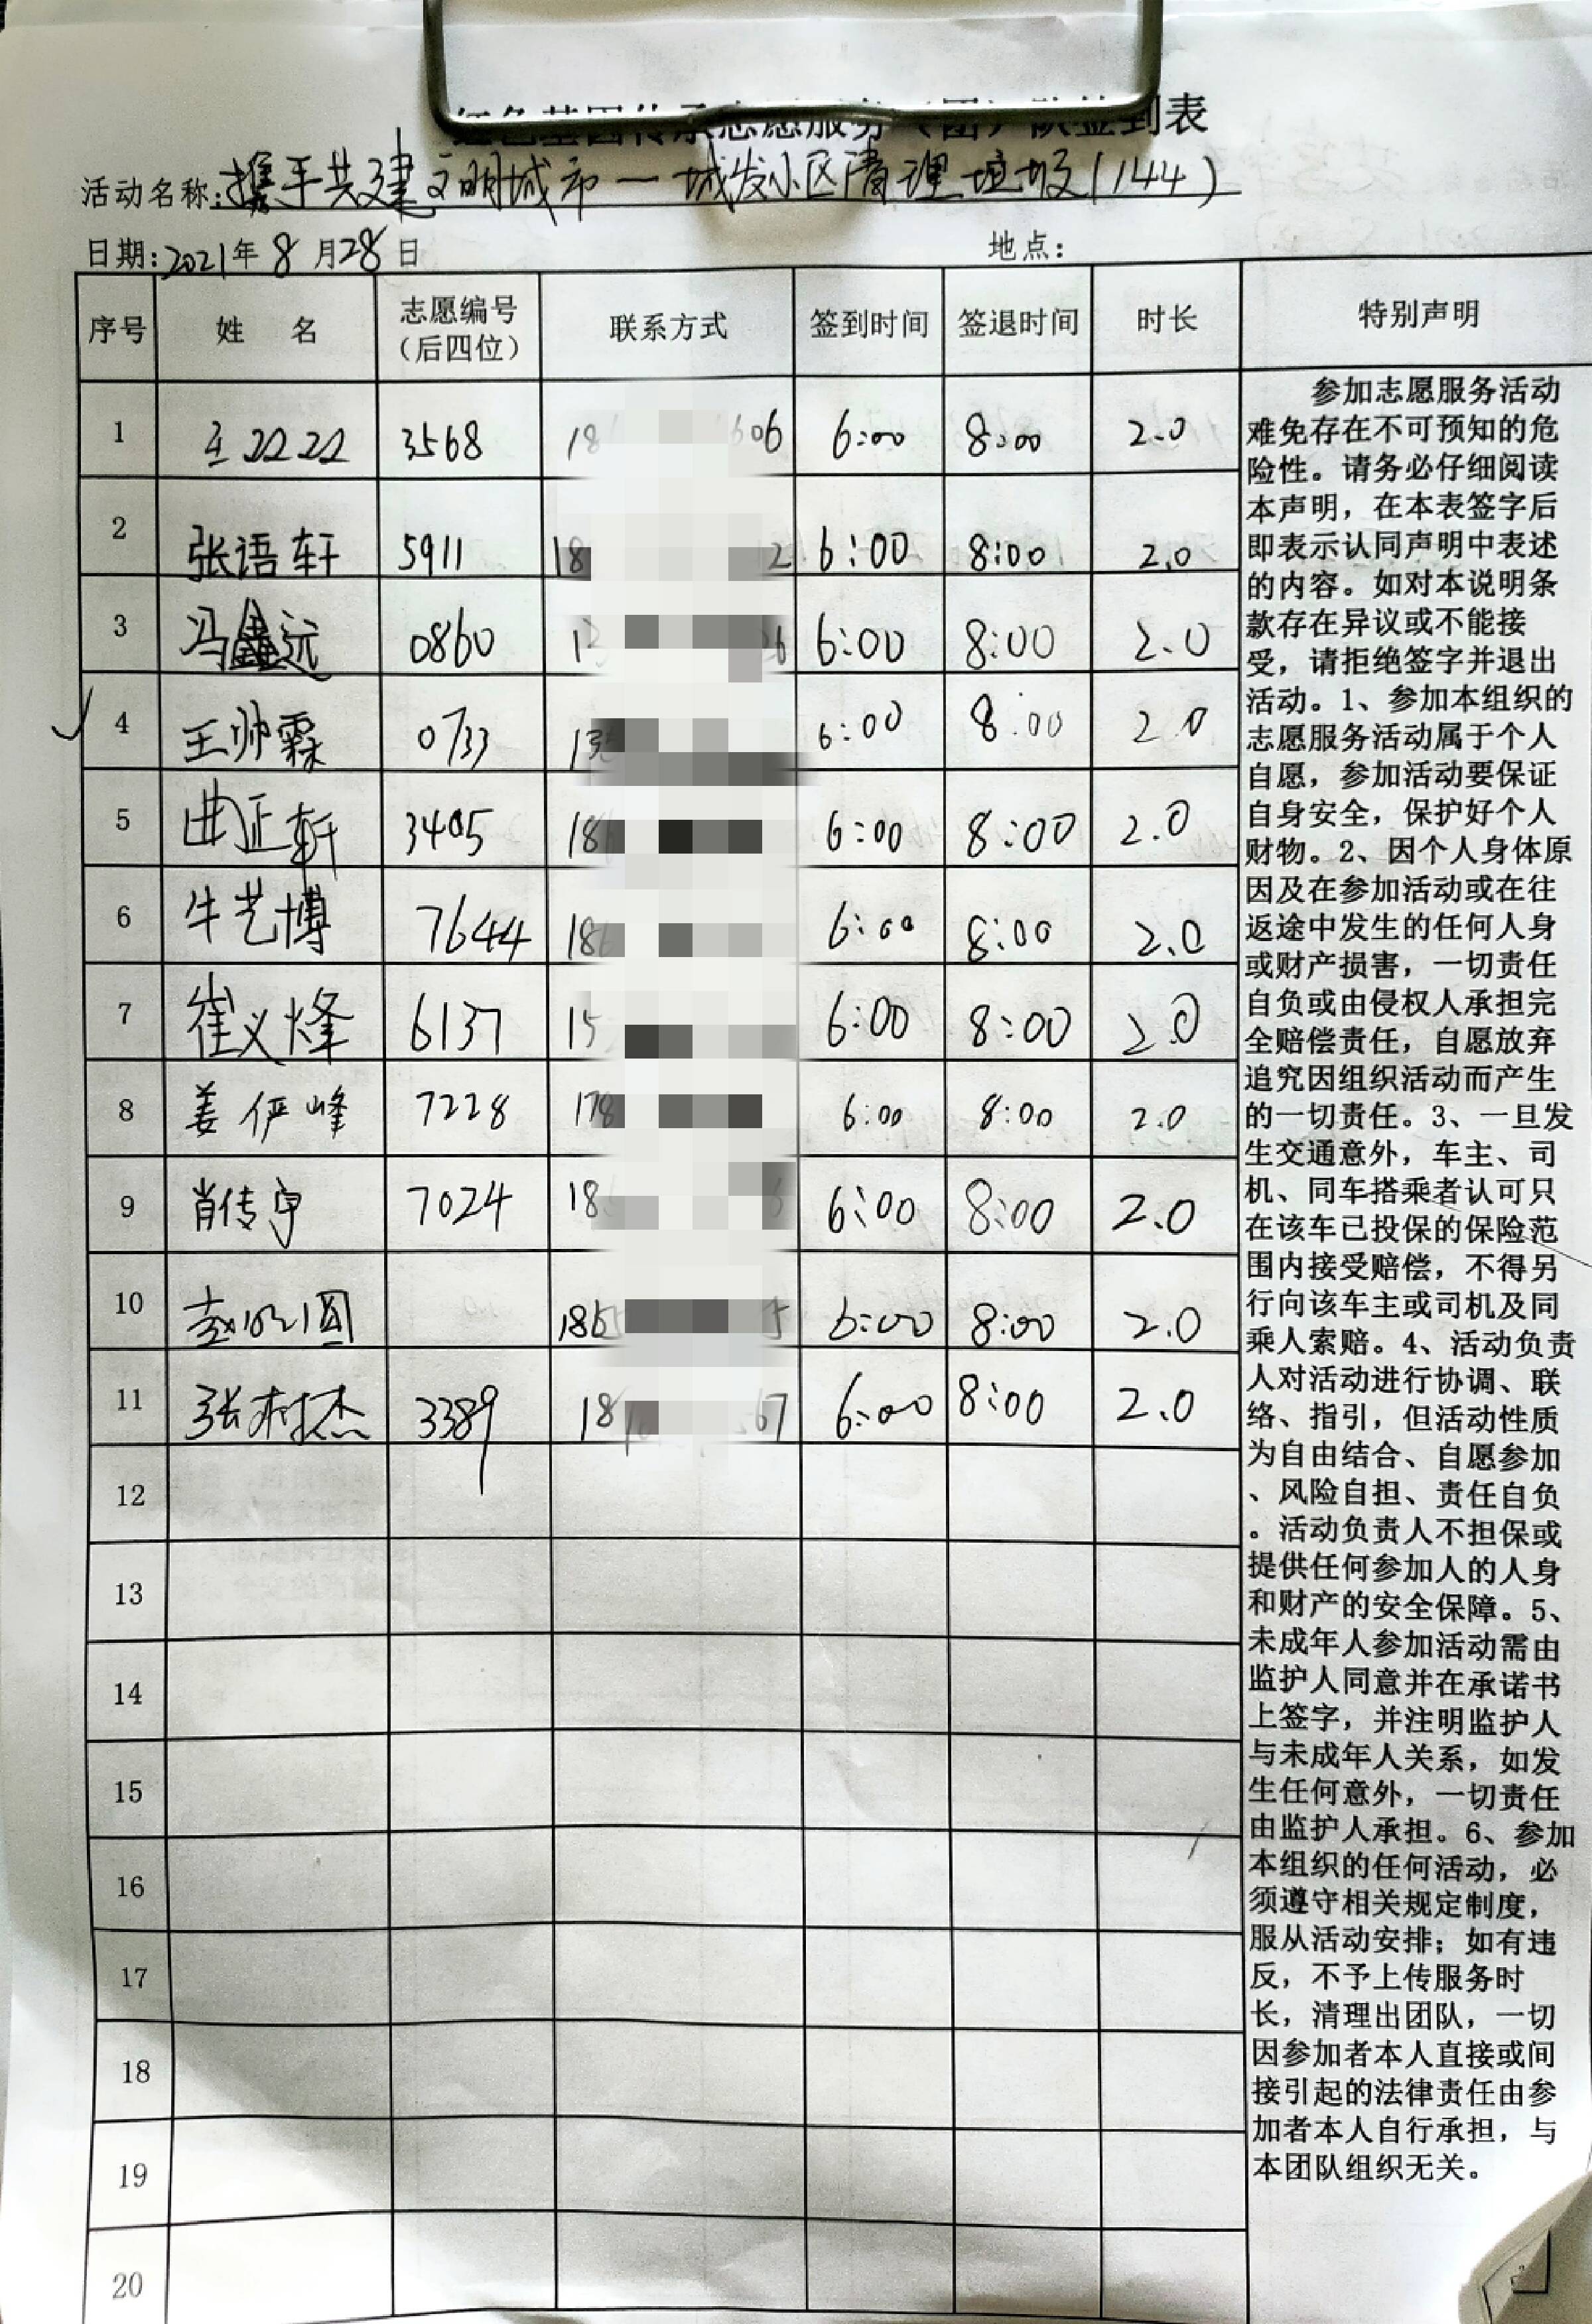 红色基因传承志愿服务（团）队签到表
活动名称:携手共建文明城市一城发小区清理垃圾(144)
日期:2021年8月28日 地点:
序号 姓名 志愿编号（后四位） 联系方式 签到时间 签退时间 时长 特别声明
1 3568 18 606 6:00 8:00 2.0
2 张语轩 5911 18 2 6:00 8:00 2.0
3 冯鑫远 0860 13 26 6:00 8:00 2.0
4 王帅霖 0733 135 6:00 8:00 2.0
5 曲正轩 3405 18 6:00 8:00 2.0
6 牛艺博 7644 18 6:00 8:00 2.0
7 崔义烽 6137 15 6:00 8:00 2.0
8 姜俨峰 7228 178 6:00 8:00 2.0
9 肖传宇 7024 18 6:00 8:00 2.0
10 186 5 6:00 8:00 2.0
11 张树杰 3389 18 67 6:00 8:00 2.0
12
13
14
15
16
17
18
19
20
参加志愿服务活动
难免存在不可预知的危
险性。请务必仔细阅读
本声明，在本表签字后
即表示认同声明中表述
的内容。如对本说明条
款存在异议或不能接
受，请拒绝签字并退出
活动。1、参加本组织的
志愿服务活动属于个人
自愿，参加活动要保证
自身安全，保护好个人
财物。2、因个人身体原
因及在参加活动或在往
返途中发生的任何人身
或财产损害，一切责任
自负或由侵权人承担完
全赔偿责任，自愿放弃
追究因组织活动而产生
的一切责任。3、一旦发
生交通意外，车主、司
机、同车搭乘者认可只
在该车已投保的保险范
围内接受赔偿，不得另
行向该车主或司机及同
乘人索赔。4、活动负责
人对活动进行协调、联
络、指引，但活动性质
为自由结合、自愿参加
、风险自担、责任自负
。活动负责人不担保或
提供任何参加人的人身
和财产的安全保障。5、
未成年人参加活动需由
监护人同意并在承诺书
上签字，并注明监护人
与未成年人关系，如发
生任何意外，一切责任
由监护人承担。6、参加
本组织的任何活动，必
须遵守相关规定制度，
服从活动安排；如有违
反，不予上传服务时
长，清理出团队，一切
因参加者本人直接或间
接引起的法律责任由参
加者本人自行承担，与
本团队组织无关。